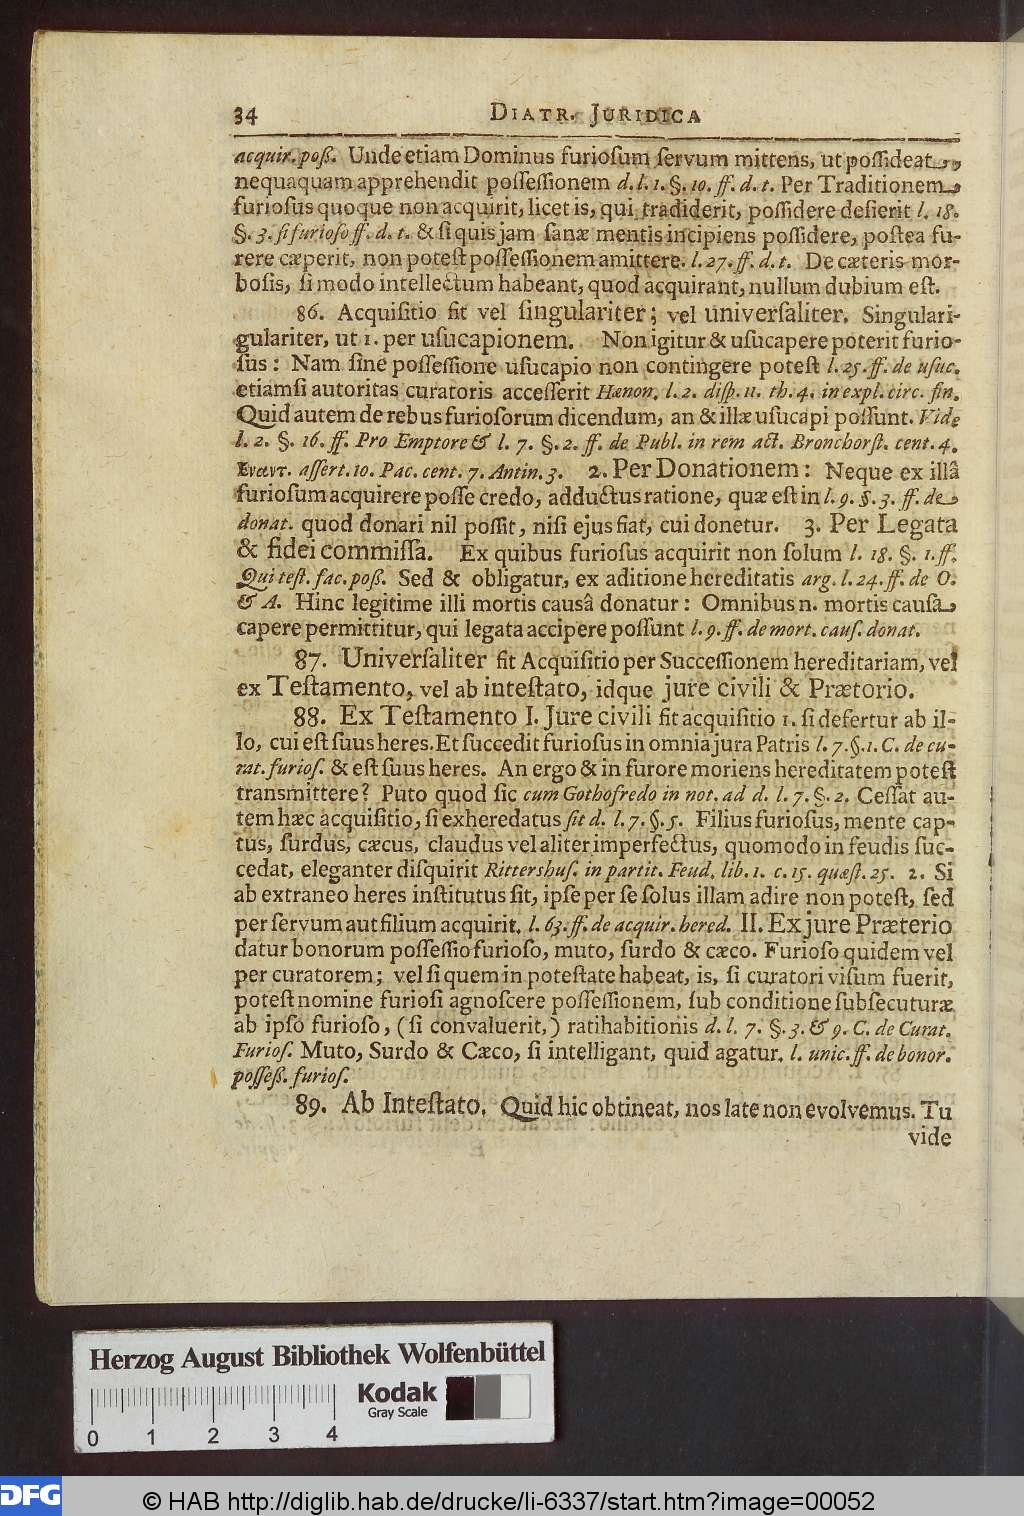 34 DIATR. JURIDICA
acquir. poß. Unde etiam Dominus furioſum ſervum mittens, ut poſſideat,
nequaquam apprehendit poſſeſſionem d. l. 1. §. 10. ff. d. t. Per Traditionem
furioſus quoque non acquirit, licet is, qui tradiderit, poſſidere deſierit l. 18.
§. 3. ſi furioſo ff. d. t. & ſi quis jam ſanæ mentis incipiens poſſidere, poſtea fu-
rere cæperit, non poteſt poſſeſſionem amittere. l. 27. ff. d. t. De cæteris mor-
boſis, ſi modo intellectum habeant, quod acquirant, nullum dubium eſt.
86. Acquiſitio fit vel ſingulariter; vel univerſaliter. Singulari-
gulariter, ut 1. per uſucapionem. Non igitur & uſucapere poterit furio-
ſus: Nam ſine poſſeſſione uſucapio non contingere poteſt l. 25. ff. de uſuc.
etiamſi autoritas curatoris acceſſerit Hænon. l. 2. diſp. 11. th. 4. in expl. circ. fin.
Quid autem de rebus furioſorum dicendum, an & illæ uſucapi poſſunt. Vide
l. 2. §. 16. ff. Pro Emptore & l. 7. §. 2. ff. de Publ. in rem act. Bronchorſt. cent. 4.
Εναντ. aſſert. 10. Pac. cent. 7. Antin. 3. 2. Per Donationem: Neque ex illâ
furioſum acquirere poſſe credo, adductus ratione, quæ eſt in l. 9. §. 3. ff. de
donat. quod donari nil poſſit, niſi ejus fiat, cui donetur. 3. Per Legata
& fidei commiſſa. Ex quibus furioſus acquirit non ſolum l. 18. §. 1. ff.
Qui teſt. fac. poß. Sed & obligatur, ex aditione hereditatis arg. l. 24. ff. de O.
& A. Hinc legitime illi mortis causâ donatur: Omnibus n. mortis cauſa
capere permittitur, qui legata accipere poſſunt l. 9. ff. de mort. cauſ. donat.
87. Univerſaliter fit Acquiſitio per Succeſſionem hereditariam, vel
ex Teſtamento, vel ab inteſtato, idque jure civili & Prætorio.
88. Ex Teſtamento I. Jure civili fit acquiſitio 1. ſi defertur ab il-
lo, cui eſt ſuus heres. Et ſuccedit furioſus in omnia jura Patris l. 7. §. 1. C. de cu-
rat. furioſ. & eſt ſuus heres. An ergo & in furore moriens hereditatem poteſt
transmittere? Puto quod ſic cum Gothofredo in not. ad d. l. 7. §. 2. Ceſſat au-
tem hæc acquiſitio, ſi exheredatus ſit d. l. 7. §. 5. Filius furioſus, mente cap-
tus, ſurdus, cæcus, claudus vel aliter imperfectus, quomodo in feudis ſuc-
cedat, eleganter diſquirit Rittershuſ. in partit. Feud. lib. 1. c. 15. quæſt. 25. 2. Si
ab extraneo heres inſtitutus ſit, ipſe per ſe ſolus illam adire non poteſt, ſed
per ſervum aut filium acquirit. l. 63. ff. de acquir. hered. II. Ex jure Præterio
datur bonorum poſſeſſio furioſo, muto, ſurdo & cæco. Furioſo quidem vel
per curatorem; vel ſi quem in poteſtate habeat, is, ſi curatori viſum fuerit,
poteſt nomine furioſi agnoſcere poſſeſſionem, ſub conditione ſubſecuturæ
ab ipſo furioſo, (ſi convaluerit,) ratihabitionis d. l. 7. §. 3. & 9. C. de Curat.
Furioſ. Muto, Surdo & Cæco, ſi intelligant, quid agatur. l. unic. ff. de bonor.
poſſeß. furioſ.
89. Ab Inteſtato. Quid hic obtineat, nos late non evolvemus. Tu
vide
Herzog August Bibliothek Wolfenbüttel
Kodak
Gray Scale
0 1 2 3 4
DFG
© HAB http://diglib.hab.de/drucke/li-6337/start.htm?image=00052